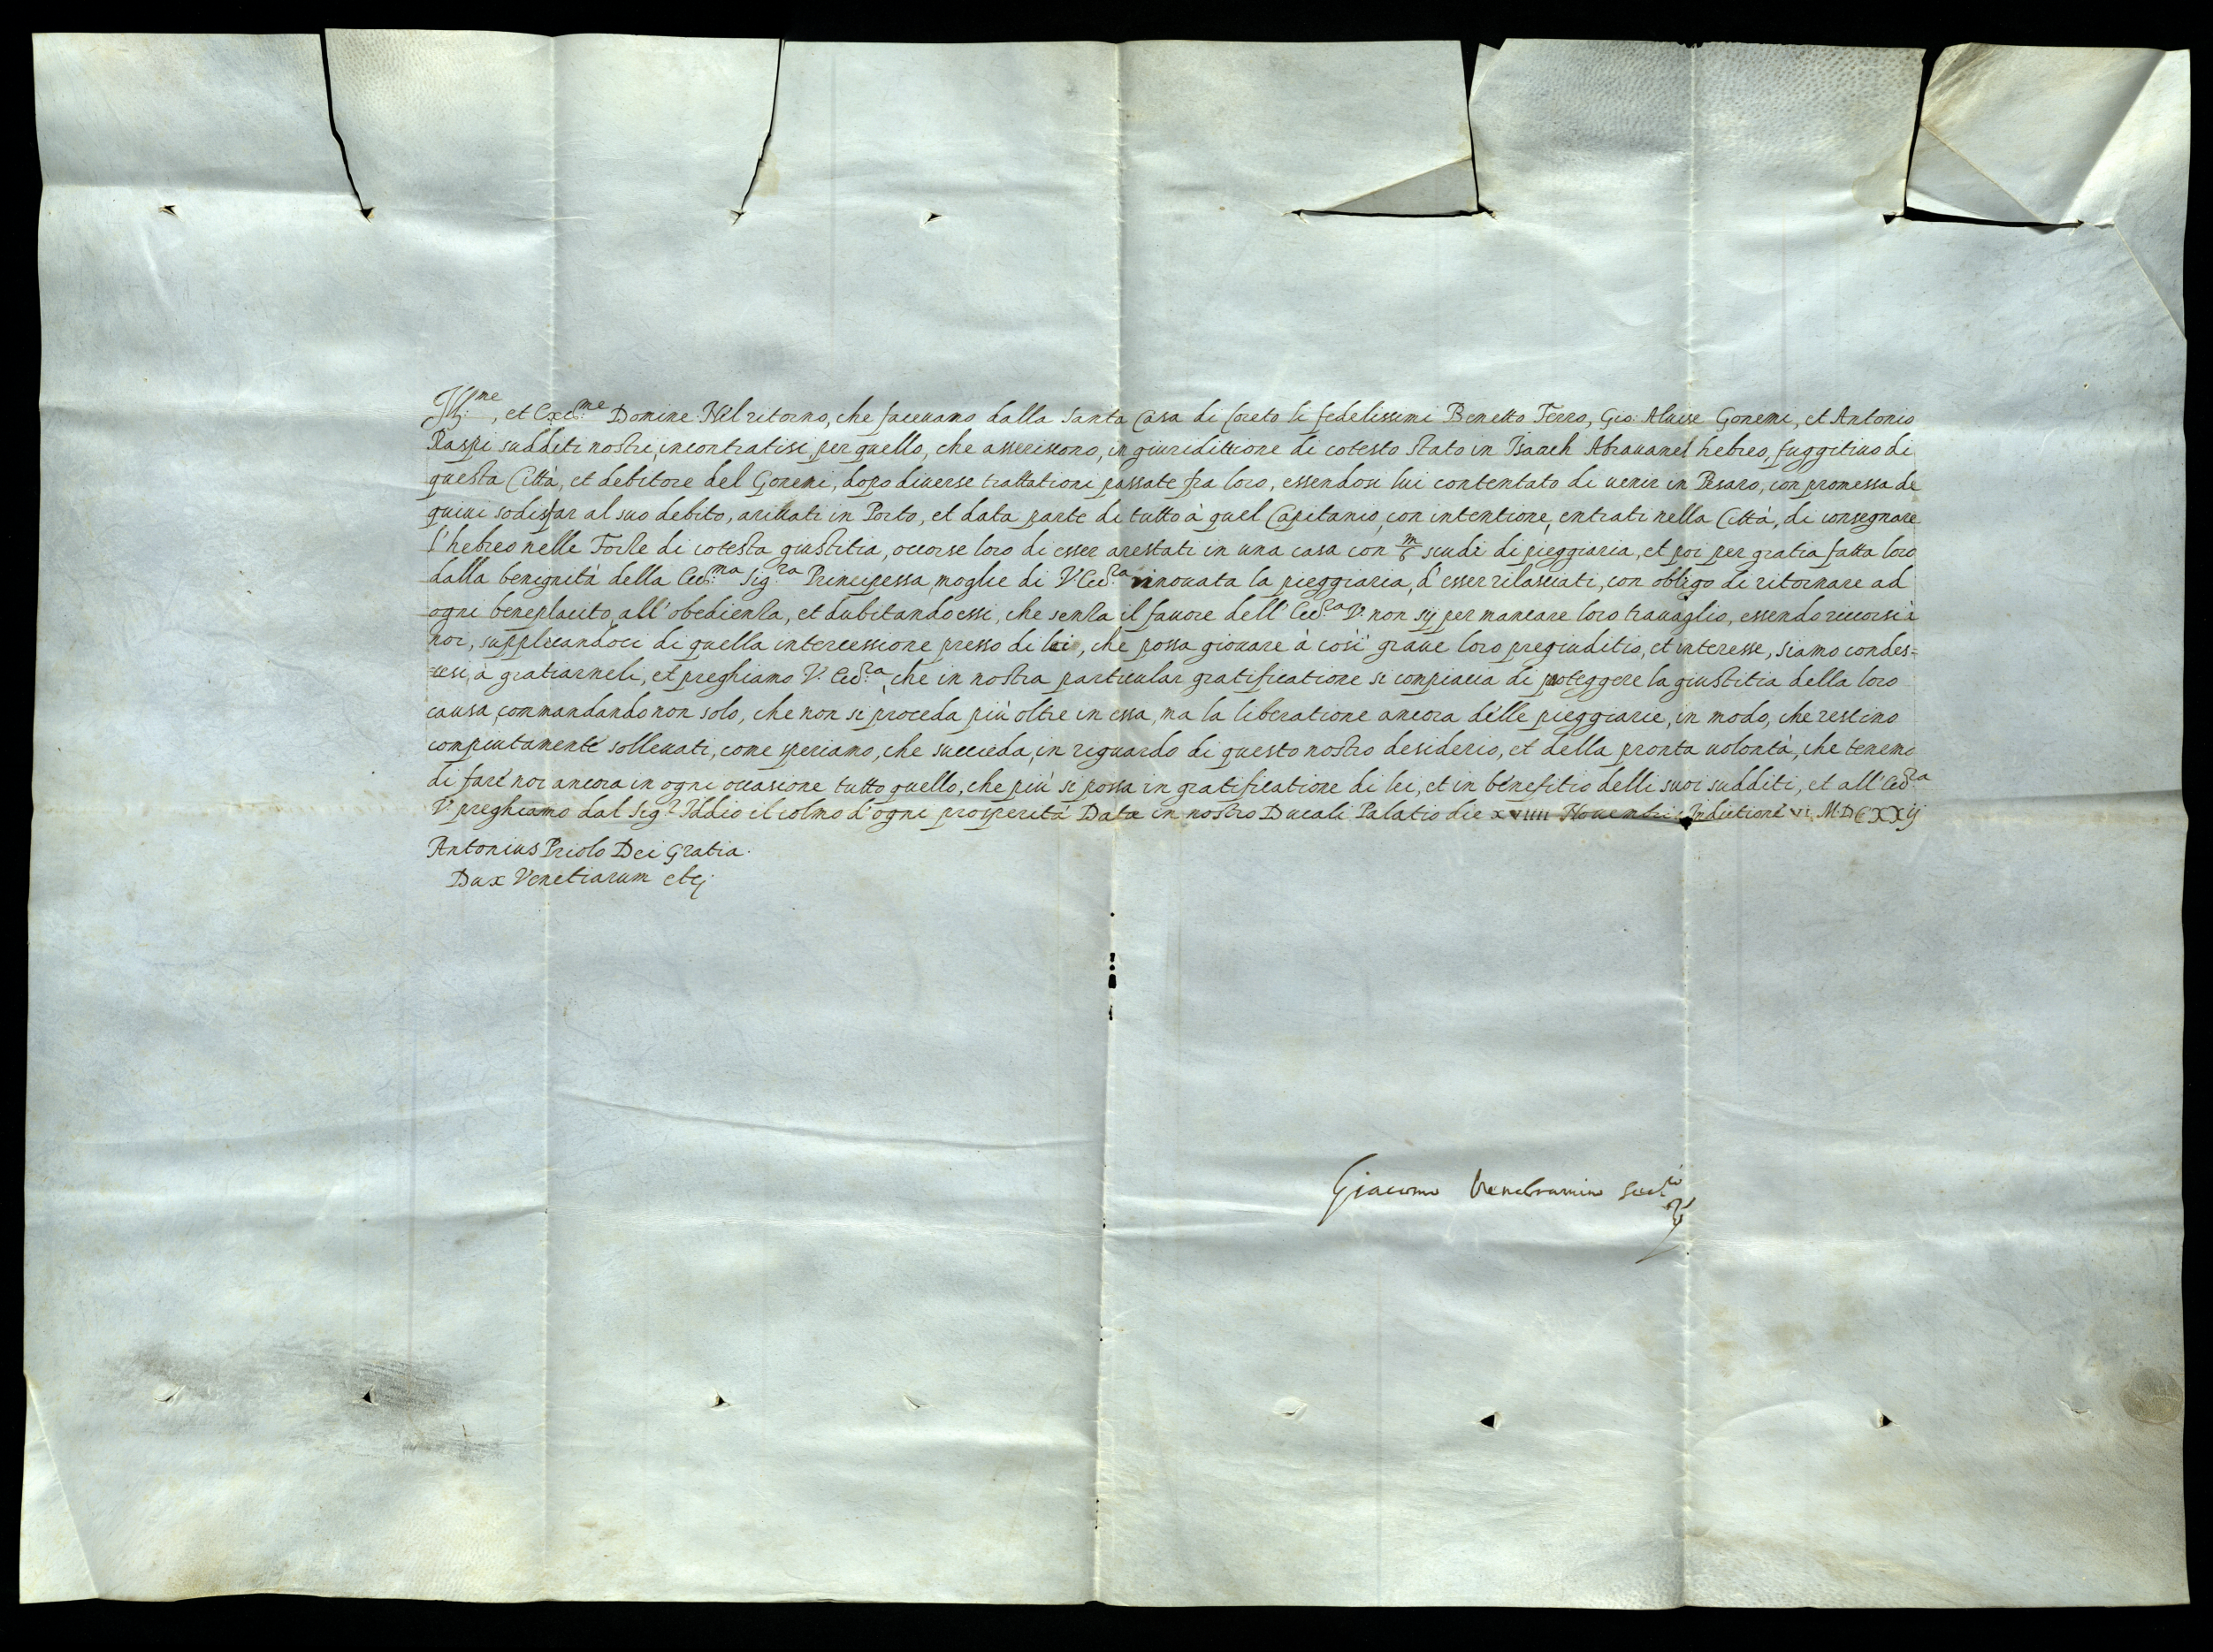 Ill:me, et Ecc:me Domine. Nel ritorno, che faceuano dalla Santa Casa di Loreto li fedelissimi Benetto Ferro, Gio: Aluise Gonemi, et Antonio
Raspi sudditi nostri, incontratisi, per quello, che asseriscono, in giuridittione di cotesto stato in Isaach Abrauanel hebreo, fuggitiuo di
questa Città, et debitore del Gonemi, dopo diuerse trattationi passate fra loro, essendosi lui contentato di uenir in Pesaro, con promessa di
quiui sodisfar al suo debito, ariuati in Porto, et data parte di tutto à quel Capitanio, con intentione, entrati nella Città, di consegnare
l'hebreo nelle Forze di cotesta giustitia, occorse loro di esser arestati in una casa con scudi di pieggiaria, et poi per gratia fatta loro
dalla benignità della Ecc:ma Sig:ra Principessa, moglie di V. Ecc:za rinouata la pieggiaria, d'esser rilasciati, con obligo di ritornare ad
ogni beneplacito all'obedienza, et dubitando essi, che senza il fauore dell'Ecc:za V. non sij per mancare loro trauaglio, essendo ricorsi à
noi, supplicandoci di quella intercessione presso di lei, che possa giouare à così graue loro pregiuditio, et interesse, siamo condes=
cesi, à gratiarneli, et preghiamo V. Ecc:za, che in nostra particular gratificatione si compiaccia di proteggere la giustitia della loro
causa, commandando non solo, che non si proceda più oltre in essa, ma la liberatione ancora delle pieggiarie, in modo, che restino
compiutamente solleuati, come speriamo, che succeda, in riguardo di questo nostro desiderio, et della pronta uolontà, che tenemo
di fare noi ancora in ogni occasione tutto quello, che più si possa in gratificatione di lei, et in benefitio delli suoi sudditi, et all'Ecc:za
V. preghiamo dal Sig:r Iddio il colmo d'ogni prosperità. Datæ in nostro Ducali Palatio die xviiii Nouembris Indictione vi, M.DCXXij
Antonius Priolo Dei Gratia
Dux Venetiarum etc.
Giacomo Vendramino Seg:rio